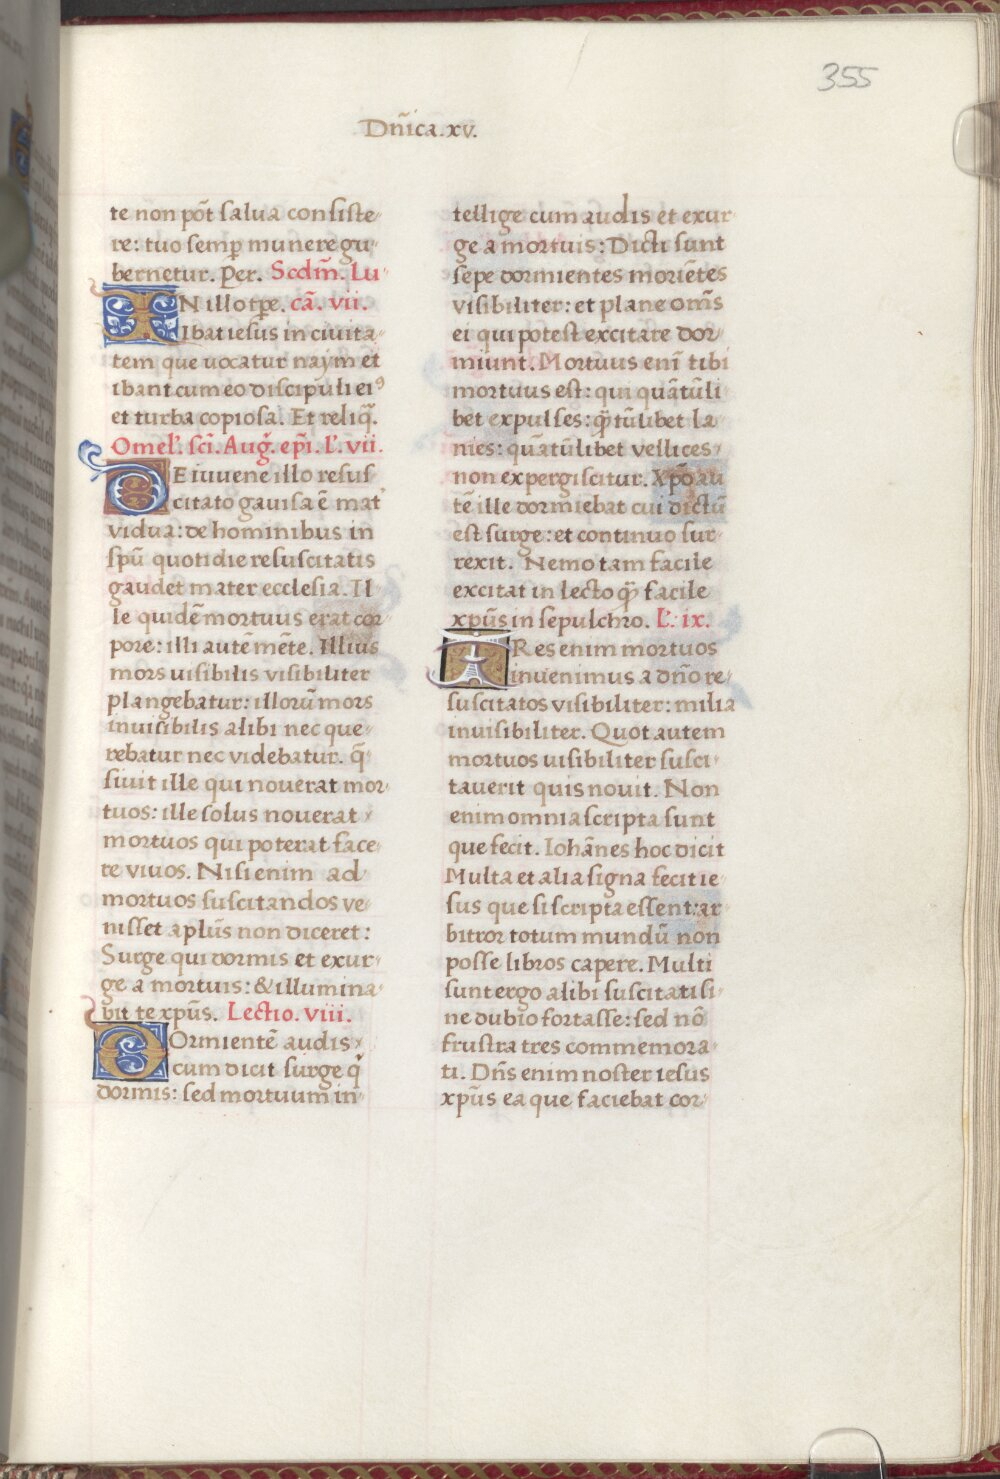 355
Dn̄ica.xv.
te non pōt salua consiste
re: tuo semꝑ munere gu
bernetur. Per. Scdm̄. Lu
IN illo tp̄e. cā. vii.
Ibat iesus in ciuita
tem que uocatur naym et
ibant cum eo discipuli ei⁹
et turba copiosa. Et reliq̄.
Omel'. sc̄i. Aug̃. ep̄i. L'. vii.
DE iuuene illo resus
citato gauisa ē mat'
vidua: de hominibus in
spū quotidie resuscitatis
gaudet mater ecclesia. Il
le quidē mortuus erat cor
pore: illi autē mēte. Illius
mors uisibilis visibiliter
plangebatur: illorū mors
inuisibilis alibi nec que
rebatur nec videbatur. q̄
siuit ille qui nouerat mor
tuos: ille solus nouerat
mortuos qui poterat face
re viuos. Nisi enim ad
mortuos suscitandos ve
nisset aplūs non diceret:
Surge qui dormis et exur
ge a mortuis: & illumina
bit te xpūs. Lectio. viii.
DOrmientē audis
cum dicit surge q̇
dormis: sed mortuum in
tellige cum audis et exur
ge a mortuis: Dicti sunt
sepe dormientes moriētes
visibiliter: et plane om̄s
ei qui potest excitare dor
miunt. Mortuus enī tibi
mortuus est: qui quātūli
bet expulses: q̄ꝫ tūlibet la
nies: quātūlibet vellices
non expergiscitur. Xpō au
tē ille dormiebat cui dictū
est surge: et continuo sur
rexit. Nemo tam facile
excitat in lecto q̄ꝫ facile
xpūs in sepulchro. L'. ix.
TRes enim mortuos
inuenimus a dn̄o re
suscitatos visibiliter: milia
inuisibiliter. Quot autem
mortuos uisibiliter susci
tauerit quis nouit. Non
enim omnia scripta sunt
que fecit. Iohānes hoc dicit
Multa et alia signa fecit ie
sus que si scripta essent: ar
bitror totum mundū non
posse libros capere. Multi
sunt ergo alibi suscitati si
ne dubio fortasse: sed nō
frustra tres commemora
ti. Dn̄s enim noster iesus
xpūs ea que faciebat cor